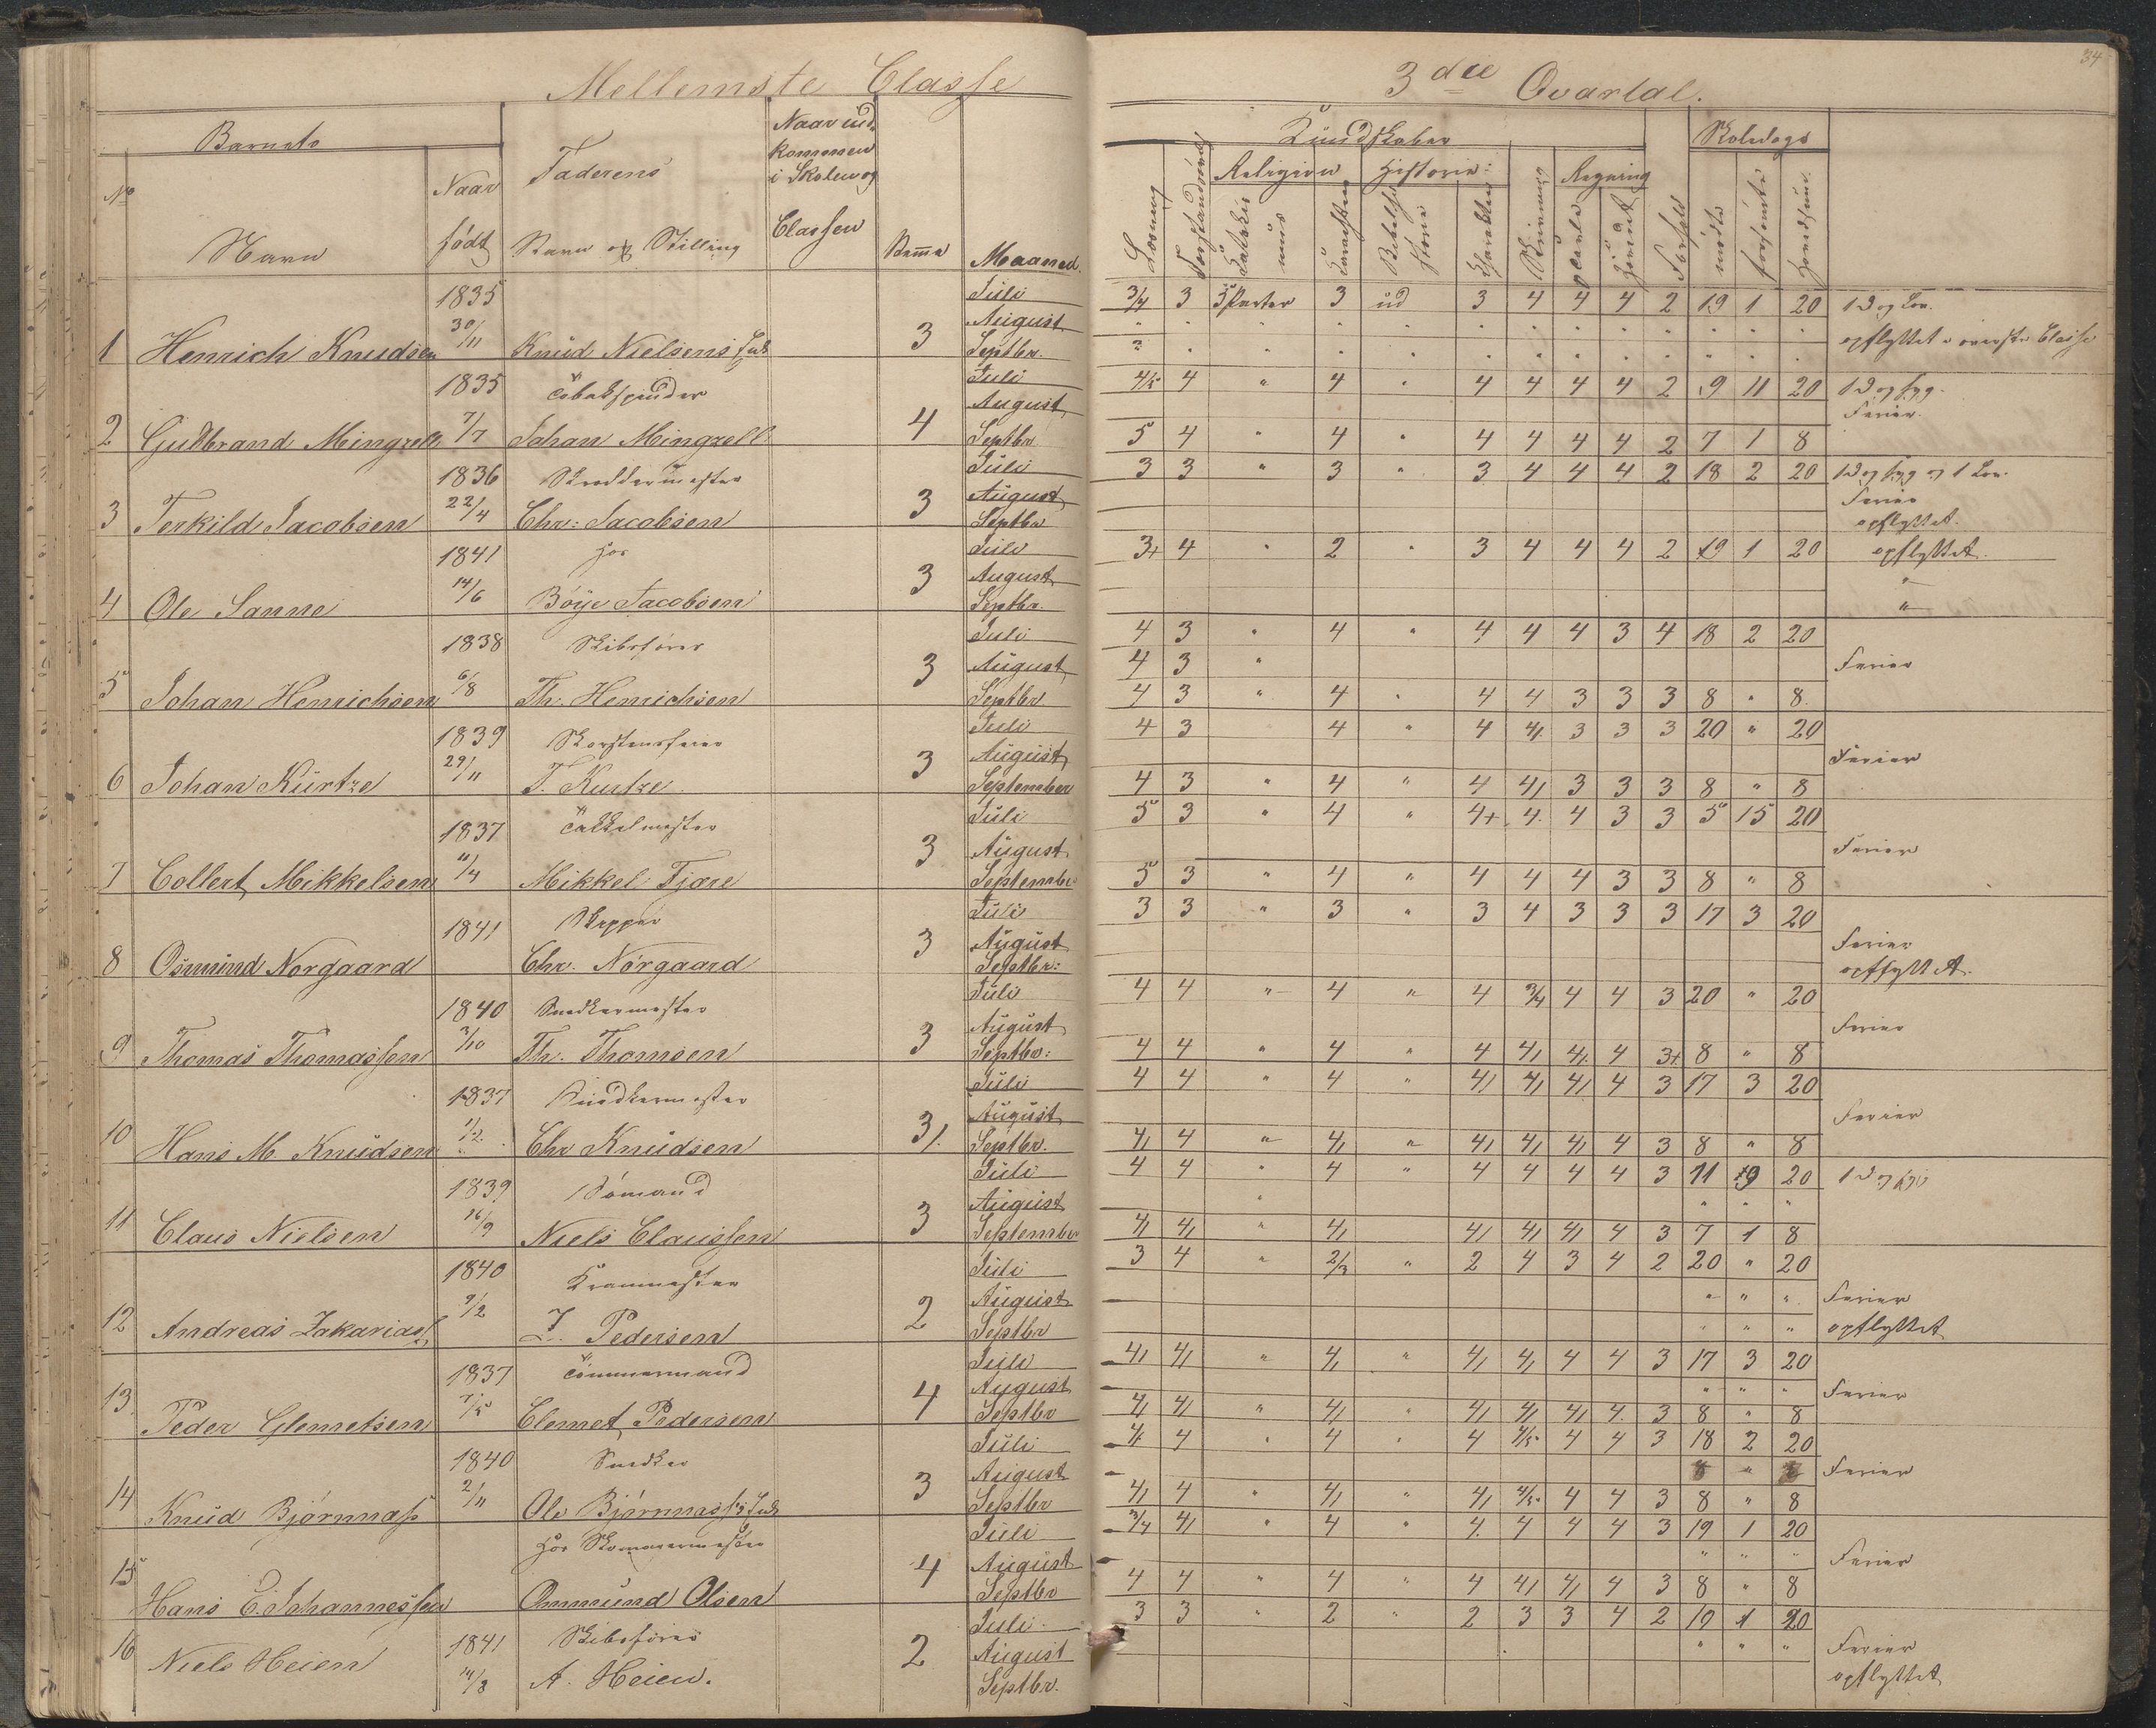 Mellemste Classe
3die Qvartal.
34
Barnets
Faderens
Naar ind-
kommen
i Skolen og
Classen
Kundskaber
Skoledage
No
Navn
Naar
født
Navn og Stilling
Maaned.
Læsning
Religion
Historie:
Skrivning
Regning
mødte
forsømte
1835
Juli 3/4 3 3 Parter 3 ud 3 4 4 4 2 19 1 20
30/11
August
1 Henrich Knudsen Knud Nielsens 3 Septbr. opflyttet i øverste Classe
1835
Juli 4/5 4 " 4 " 4 4 4 4 2 9 11 20
August Ferier.
2 Gudbrand Mingrell 7/7 Johan Mingrell 4 Septbr 5 4 " 4 " 4 4 4 4 2 7 1 8
1836 Skreddermester Juli 3 3 " 3 " 3 4 4 4 2 18 2 20
August Ferier
3 Terkild Jacobsen 22/4 Chr: Jacobsen 3 Septbr opflyttet.
1841 hos Juli 3+ 4 " 2 " 3 4 4 4 2 19 1 20 opflyttet.
14/6 August "
4 Ole Sanne Böye Jacobsen 3 Septbr. "
1838 Skibsfører Juli 4 3 " 4 " 4 4 4 3 4 18 2 20
August 4 3 " Ferier
5 Johan Henrichsen 6/8 Th: Henrichsen 3 Septbr 4 3 " 4 " 4 4 3 3 3 8 " 8
1839 Skorstensfeier Juli 4 3 4 " 4 4 3 3 3 20 " 20
29/11 August Ferier
6 Johan Kürtze T. Kurtze 3 September 4 3 " 4 " 4 4 3 3 3 8 " 8
1837 Takkelmester Juli 5 3 " 4 " 4+ 4 4 3 3 5 15 20
August Ferier
7 Collert Mikkelsen 11/4 Mikkel Fjære 3 September 5 3 " 4 " 4 4 4 3 3 8 " 8
1841 Skipper Juli 3 3 " 3 " 3 4 3 3 3 17 3 20
August Ferier
8 Osmund Norgaard Chr. Nörgaard 3 Septbr: opflyttet.
1840 Snedkermester Juli 4 4 " 4 " 4 3/4 4 4 3 20 " 20
August Ferier
9 Thomas Thomassen 3/10 Th. Thomsen 3 Septbr: 4 4 " 4 " 4 4 4 4 3+ 8 " 8
1837 Snedkermester Juli 4 4 " 4 " 4 4 4 4 3 17 3 20
August Ferier
10 Hans M Knudsen 1/2 Chr Knudsen 3 Septbr. 4 4 " 4 " 4 4 4 4 3 8 " 8
1839 Sømand Juli 4 4 " 4 " 4 4 4 4 3 11 9 20
16/9 August
11 Claus Nielsen Niels Claussen 3 September 4 4 " 4 4 4 4 4 3 7 1 8
1840 Kranmester Juli 3 4 " 2/3 " 2 4 3 4 2 20 " 20
9/2 August " " " Ferier
12 Andreas Zakarias Z. Pedersen 2 Septbr " " " opflyttet
1837 Tömmermand Juli 4 4 " 4 " 4 4 4 4 3 17 3 20
August " " " Ferier
13 Peder Clemetsen 7/5 Clemet Pedersen 4 Septbr 4 4 " 4 " 4 4 4 4 3 8 " 8
1840 Snedker Juli 4 4 " 4 " 4 4/5 4 4 3 18 2 20
August Ferier
14 Knud Bjørnnass 2/11 Ole Bjørnnass's 3 Septbr 4 4 " 4 " 4 4/5 4 4 3 8 " 8
hos Skomagermester Juli 3/4 4 " 4 " 4 4 4 4 3 19 1 20
August " " " Ferier
15 Hans C. Johannessen Ommund Olsen 4 Septbr 4 4 " 4 " 4 4 4 4 3 8 " 8
1841 Skibsfører Juli 3 3 " 2 " 2 3 3 4 2 19 1 20
16 Niels Heien 2 August " " " Ferier
14/3 A. Heien. Septbr. opflyttet